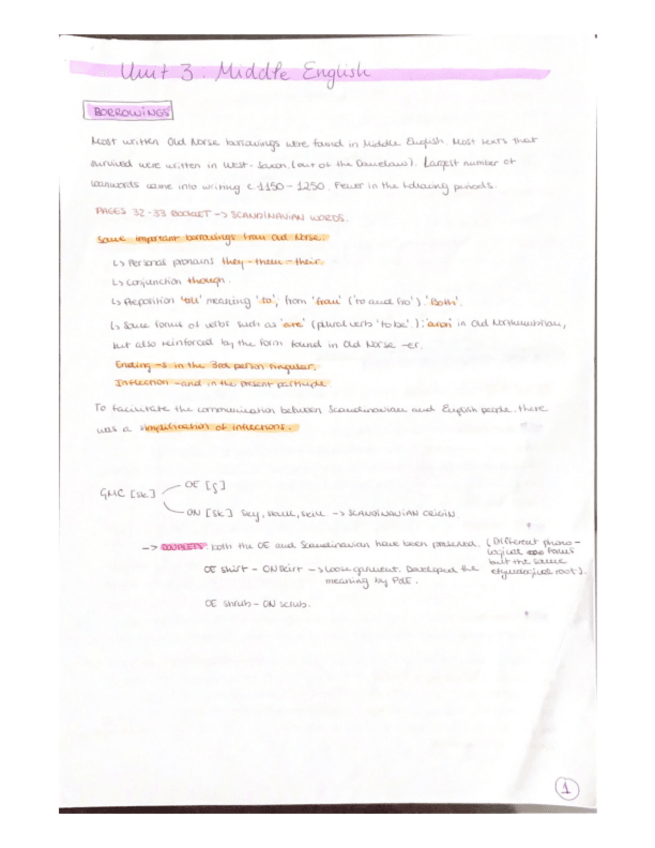 Unit 3. Middle English
BORROWINGS
Most written Old Norse borrowings were found in Middle English. Most texts that
survived were written in West-Saxon (out of the Danelaw). Largest number of
loanwords came into writing c.1150 - 1250. Fewer in the following periods.
PAGES 32-33 BOOKLET -> SCANDINAVIAN WORDS.
Some important borrowings from Old Norse:
↳ Personal pronouns they - them - their.
↳ Conjunction though.
↳ Preposition meaning 'to', from 'frau' ('to and fro'). 'Both'.
↳ Some forms of verbs such as 'are' (plural verb 'to be'); 'aron' in Old Northumbrian,
but also reinforced by the form found in Old Norse -er.
Ending -s in the 3rd person singular.
Inflection -and in the present participle
To facilitate the communication between Scandinavian and English people, there
was a simplification of inflections.
GMC [sk]
OE [ʃ]
ON [sk] sky, skull, skill -> SCANDINAVIAN ORIGIN.
-> DOUBLETS: both the OE and Scandinavian have been preserved. (Different phono-
logical forms
but the same
etymological root).
OE shirt - ON skirt -> loose garment. Developed the
meaning by PdE.
OE shrub - ON scrub.
1